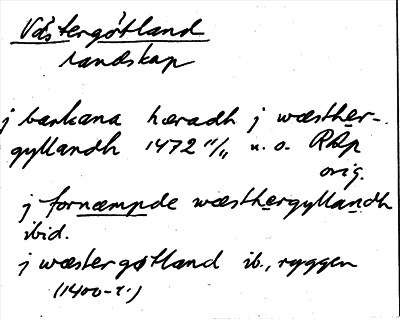 Västergötland
landskap
j barkana hæradh j wæsther-
gyllandh 1472 11/11 u. o. RAp
orig.
j fornæmpde wæsthergyllandh
ibid.
j wæstergøtland ib., ryggen
(1400-t.)